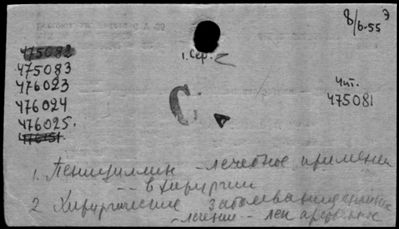 8/6-55 Э
1 Сер.
475082
475083
476023
476024
476025.
Чит.
475081
С.
1. Пенициллин - лечебное примене
-- в хирургии
2 Хирургические заболевания
- лечение -